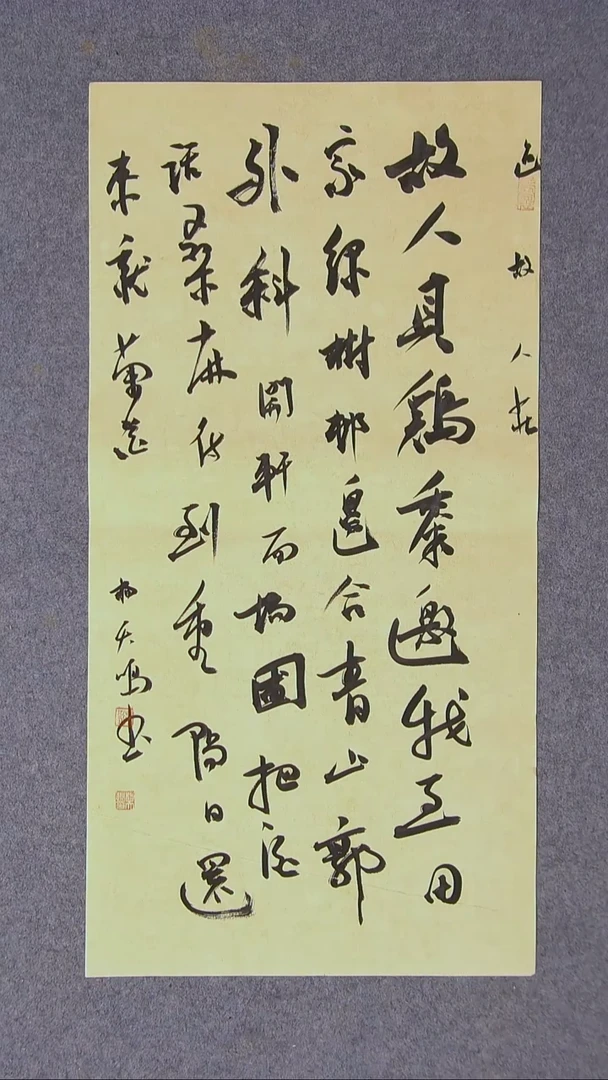 过故人庄
故人具鷄黍邀我至田
家绿樹邨邊合青山郭
外斜開軒面場圃把酒
話桑麻待到重陽日還
来就菊花
天鸣书